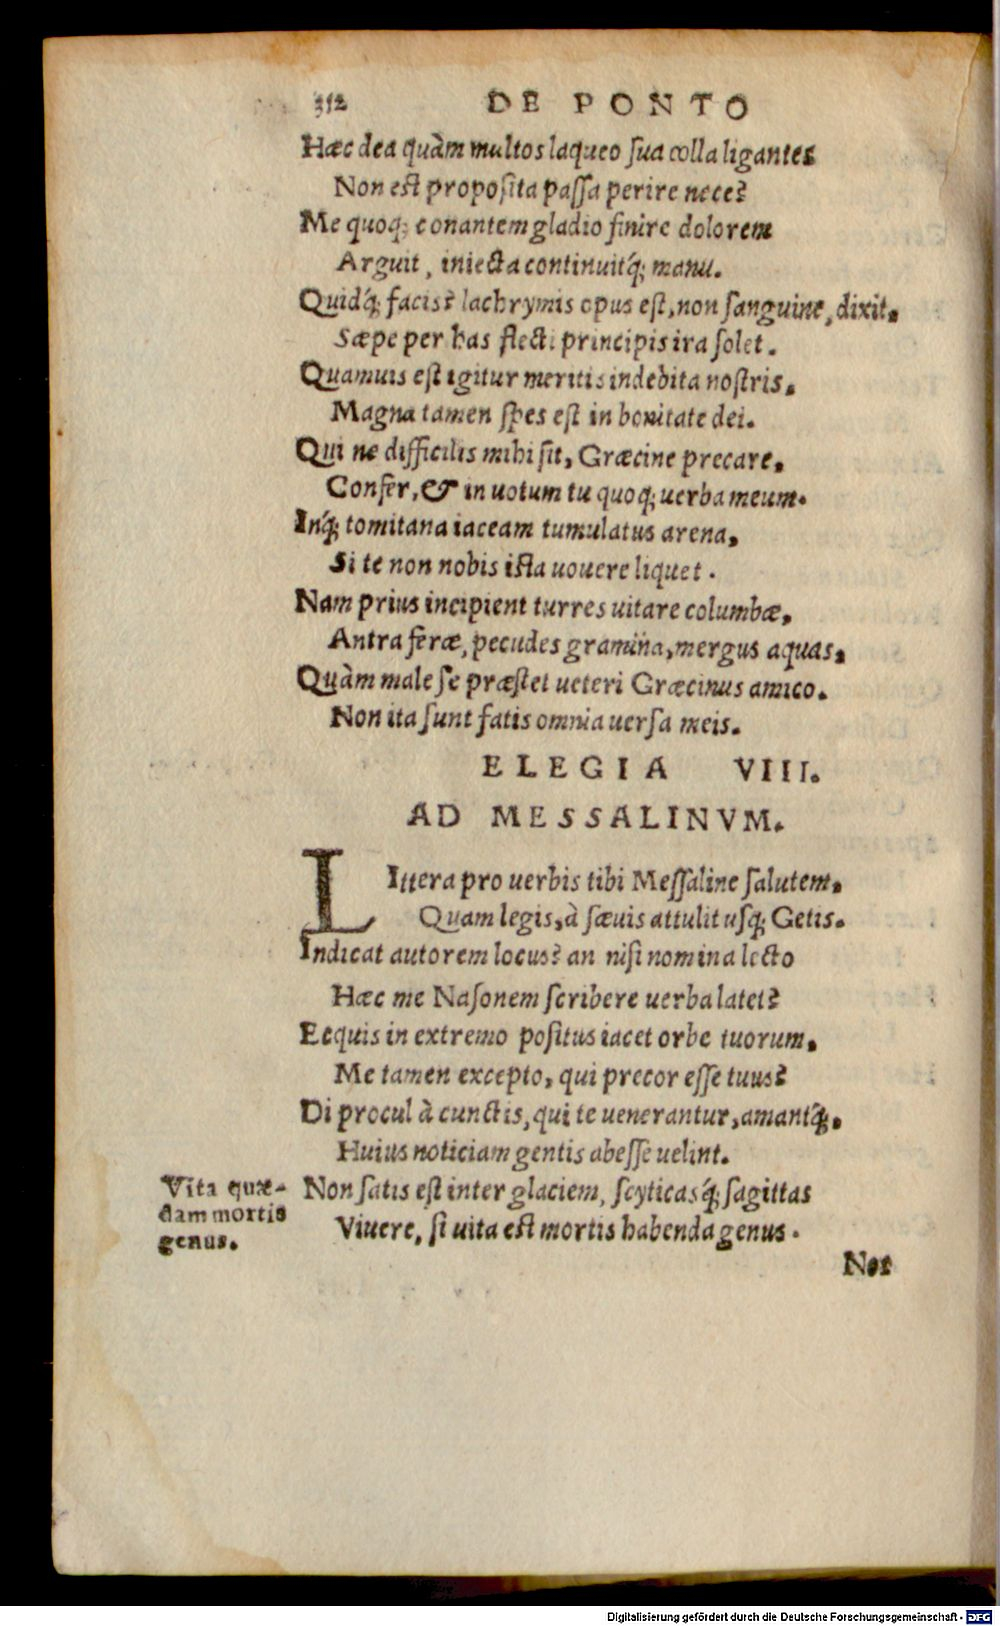 312 DE PONTO
Hæc dea quàm multos laqueo ſua colla ligantes
Non eſt propoſita paſſa perire nece?
Me quoq; conantem gladio finire dolorem
Arguit, iniecta continuitq́; manu.
Quidq́; facis? lachrymis opus eſt, non ſanguine, dixit.
Sæpe per has flecti principis ira ſolet.
Quamuis eſt igitur meritis indebita noſtris.
Magna tamen ſpes eſt in bonitate dei.
Qui ne difficilis mihi ſit, Græcine precare.
Confer, & in uotum tu quoq; uerba meum.
Inq́; tomitana iaceam tumulatus arena,
Si te non nobis iſta uouere liquet.
Nam prius incipient turres uitare columbæ,
Antra feræ, pecudes gramina, mergus aquas.
Quàm male ſe præſtet ueteri Græcinus amico.
Non ita ſunt fatis omnia uerſa meis.
ELEGIA VIII.
AD MESSALINVM.
LIttera pro uerbis tibi Meſſaline ſalutem.
Quam legis, à ſæuis attulit uſq; Getis.
Indicat autorem locus? an niſi nomina lecto
Hæc me Naſonem ſcribere uerba latet?
Ecquis in extremo poſitus iacet orbe tuorum.
Me tamen excepto, qui precor eſſe tuus?
Di procul à cunctis, qui te uenerantur, amantq́;.
Huius noticiam gentis abeſſe uelint.
Vita quæ-
dam mortis
genus.
Non ſatis eſt inter glaciem, ſcyticasq́; ſagittas
Viuere, ſi uita eſt mortis habenda genus.
Nos
Digitalisierung gefördert durch die Deutsche Forschungsgemeinschaft - DFG